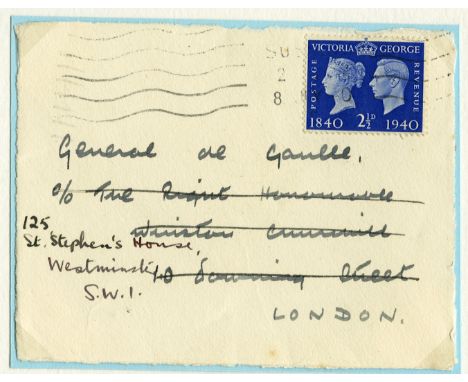 VICTORIA GEORGE
POSTAGE
REVENUE
1840 2½D 1940
SU
2
8
General de Gaulle,
c/o The Right Honourable
Winston Churchill
125
St. Stephen's House,
Westminster
10 Downing Street
S.W.1.
LONDON.